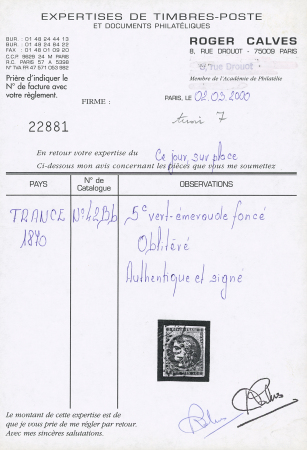 EXPERTISES DE TIMBRES-POSTE
ET DOCUMENTS PHILATÉLIQUES
BUR. : 01 48 24 44 13
BUR. : 01 48 24 84 22
FAX : 01 48 01 09 20
C.C.P 9629 24 M PARIS
R.C. PARIS 57 A 5363
N° TVA FR 47 571 063 982
ROGER CALVES
8, RUE DROUOT - 75009 PARIS
Membre de l'Académie de Philatélie
Prière d'indiquer le
N° de facture avec
votre règlement.
FIRME :
PARIS, LE 02.03.2000
22881
7
En retour votre expertise du Ce jour, sur place
Ci-dessous mon avis concernant les pièces que vous me soumettez
PAYS
N° de
Catalogue
OBSERVATIONS
FRANCE
1870
N°42Bb
5c vert-émeraude foncé
Oblitéré
Authentique et signé
Le montant de cette expertise est de
que je vous prie de me régler par retour.
Avec mes sincères salutations.